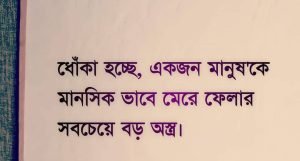 ধোঁকা হচ্ছে, একজন মানুষ'কে
মানসিক ভাবে মেরে ফেলার
সবচেয়ে বড় অস্ত্র।